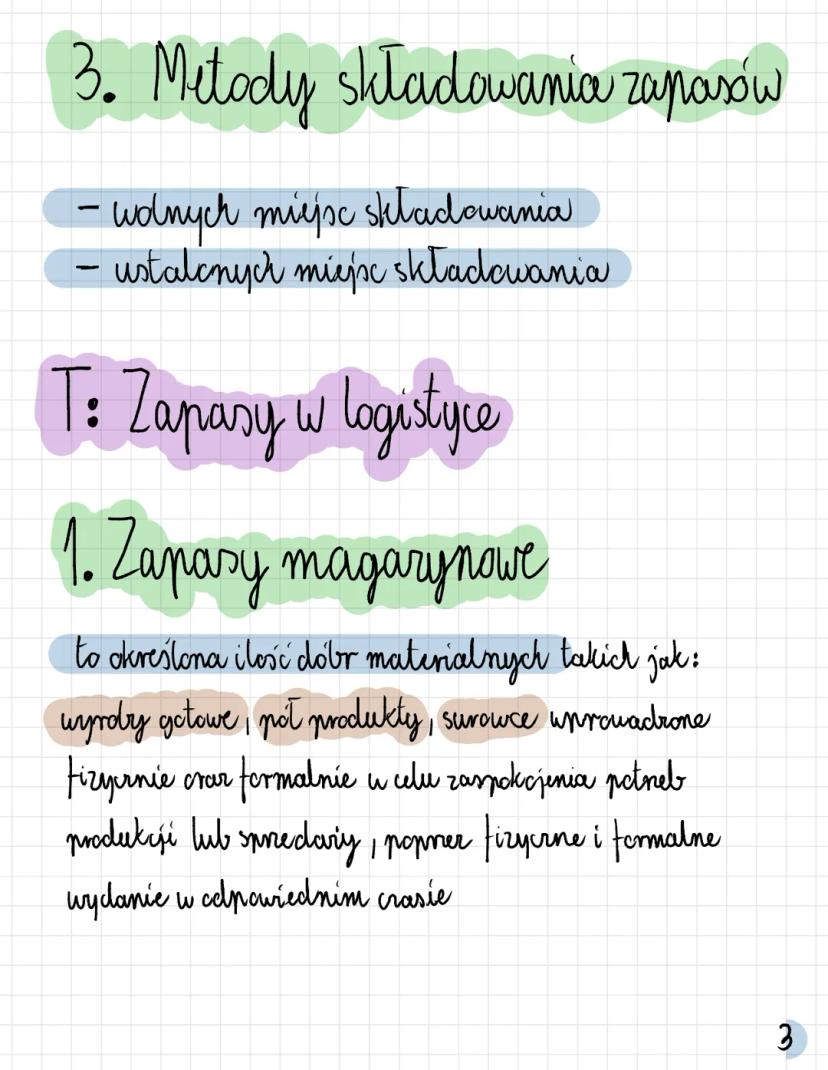 3. Metody składowania zapasów
- wolnych miejsc składowania
- ustalonych miejsc składowania
T: Zapasy w logistyce
1. Zapasy magazynowe
to określona ilość dóbr materialnych takich jak:
wyroby gotowe, pół produkty, surowce wprowadzone
fizycznie oraz formalnie w celu zaspokojenia potrzeb
produkcji lub sprzedaży, poprzez fizyczne i formalne
wydanie w odpowiednim czasie
3